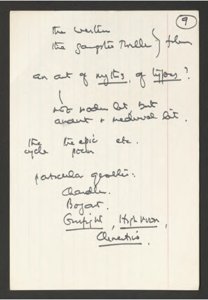 9
the western
the gangster thriller } film
an art of myths, of types?
not modern lit, but
ancient & medieval lit.
the the epic etc.
cycle poem
particular qualities:
Chandler
Bogart
Gunfight, High Noon,